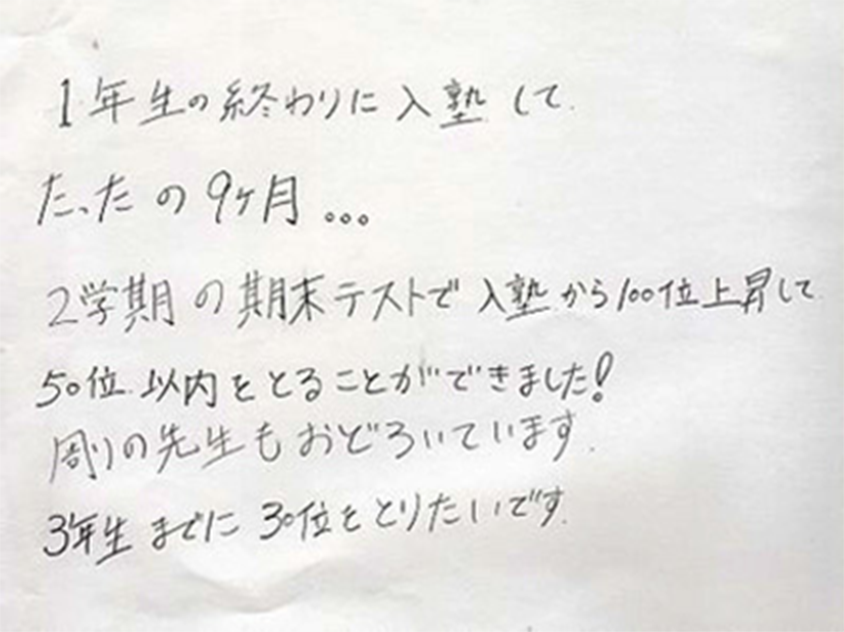 1年生の終わりに入塾して.
たったの9ヶ月...
2学期の期末テストで入塾から100位上昇して
50位以内をとることができました!
周りの先生もおどろいています.
3年生までに30位をとりたいです.